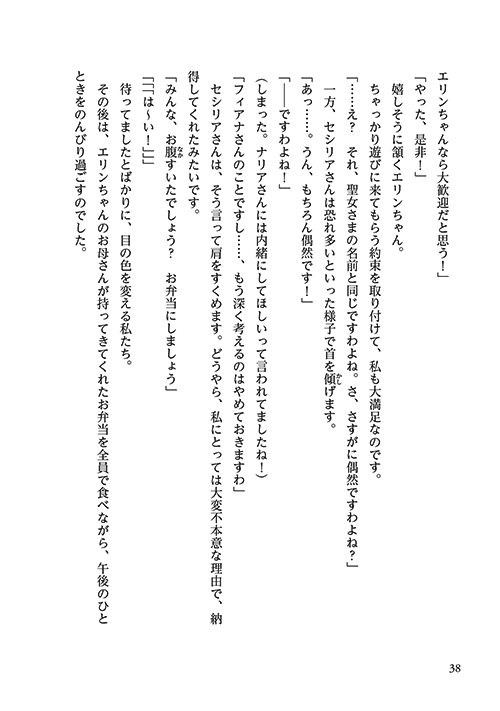 エリンちゃんなら大歓迎だと思う！」
「やった、是非！」
嬉しそうに頷くエリンちゃん。
ちゃっかり遊びに来てもらう約束を取り付けて、私も大満足なのです。
「……え？　それ、聖女さまの名前と同じですわよね。さ、さすがに偶然ですわよね？」
一方、セシリアさんは恐れ多いといった様子で首を傾げます。
かし
「あっ……。うん、もちろん偶然です！」
「――ですわよね！」
（しまった。ナリアさんには内緒にしてほしいって言われてましたね！）
「フィアナさんのことですし……、もう深く考えるのはやめておきますわ」
セシリアさんは、そう言って肩をすくめます。どうやら、私にとっては大変不本意な理由で、納
得してくれたみたいです。
「みんな、お腹すいたでしょう？　お弁当にしましょう」
なか
「「「は～い！」」」
待ってましたとばかりに、目の色を変える私たち。
その後は、エリンちゃんのお母さんが持ってきてくれたお弁当を全員で食べながら、午後のひと
ときをのんびり過ごすのでした。
38